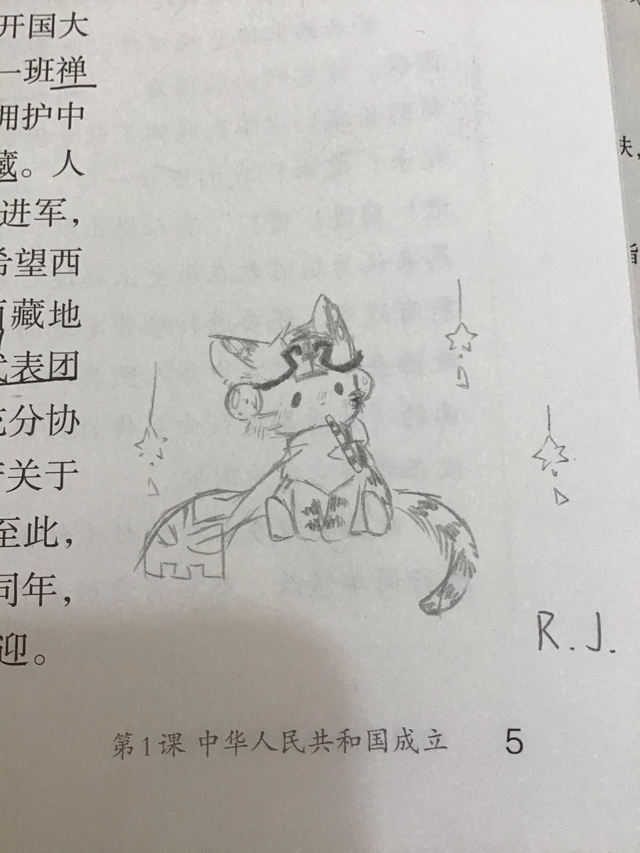 开国大
一班禅
拥护中
藏。人
进军，
希望西
西藏地
代表团
充分协
关于
至此，
同年，
迎。
R.J.
第1课 中华人民共和国成立 5